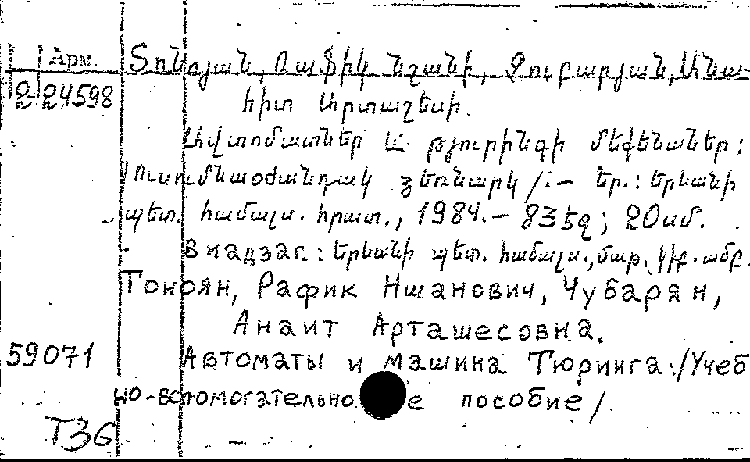 Арм. Տոնոյան, Ռաֆիկ Նշանի, Չուբարյան, Անա-
Զ 24598 հիտ Արտաշեսի.
Ավտոմատներ և թյուրինգի մեքենաներ:
/Ուսումնաօժանդակ ձեռնարկ/.- Եր.: Երևանի
պետ. համալս. հրատ., 1984.- 83 էջ; 20 սմ.
В надзаг.: Երևանի պետ. համալս., մաթ. կիբ. ամբ.
Тоноян, Рафик Ншанович, Чубарян,
Анаит Арташесовна.
59071 Автоматы и машина Тюринга:/Учеб
но-вспомогательное пособие/
Т36